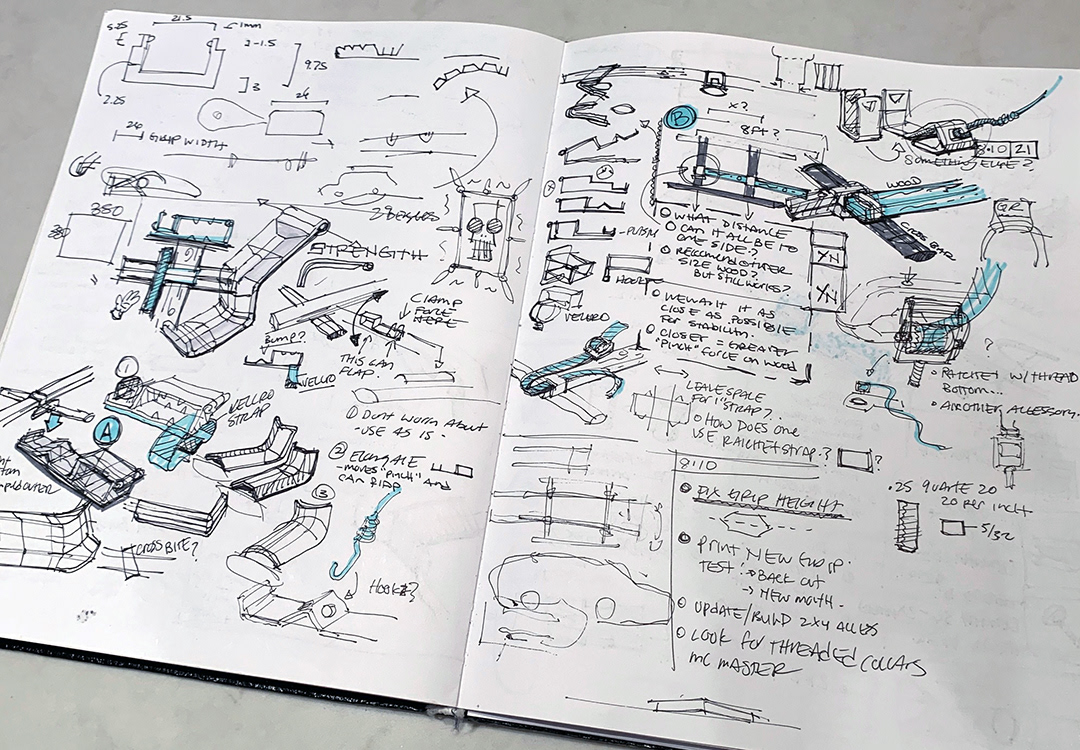 5.25
21.5
1mm
2-1.5
9.75
3
2.25
24
26
GRIP WIDTH
350
350
STRENGTH
CLAMP
FORCE
HERE
BUMP?
THIS CAN
FLAP.
VELCRO
1
VELCRO
STRAP
A
① DONT WORRY ABOUT
-USE AS IS.
② ELONGATE
-MOVES "PINCH" AND
3
CROSSBITE?
HOOK?
B
X?
8FT?
SOMETHING ELSE?
8.10 21
WOOD
CROSS BAR
WHAT DISTANCE
CAN IT ALL BE TO
ONE SIDE?
RECOMMEND OTHER
SIZE WOOD?
BUT STILL WORKS?
Y/N
Y/N
VELCRO
WE WANT IT AS
CLOSE AS POSSIBLE
FOR STABILITY.
CLOSER = GREATER
"PINCH" FORCE ON WOOD
?
RATCHET W/THREAD
BOTTOM...
ANOTHER ACCESSORY.
LEAVE SPACE
FOR "STRAP"?
HOW DOES ONE
USE RATCHET STRAP.?
?
8:10
FIX GRIP HEIGHT
PRINT NEW GRIP.
TEST: → BACK CUT
→ NEW MOUTH.
UPDATE/BUILD 2X4 ALLIES
LOOK FOR THREADED COLLARS
MC MASTER
.25 QUARTE 20
20 PER INCH
5/32